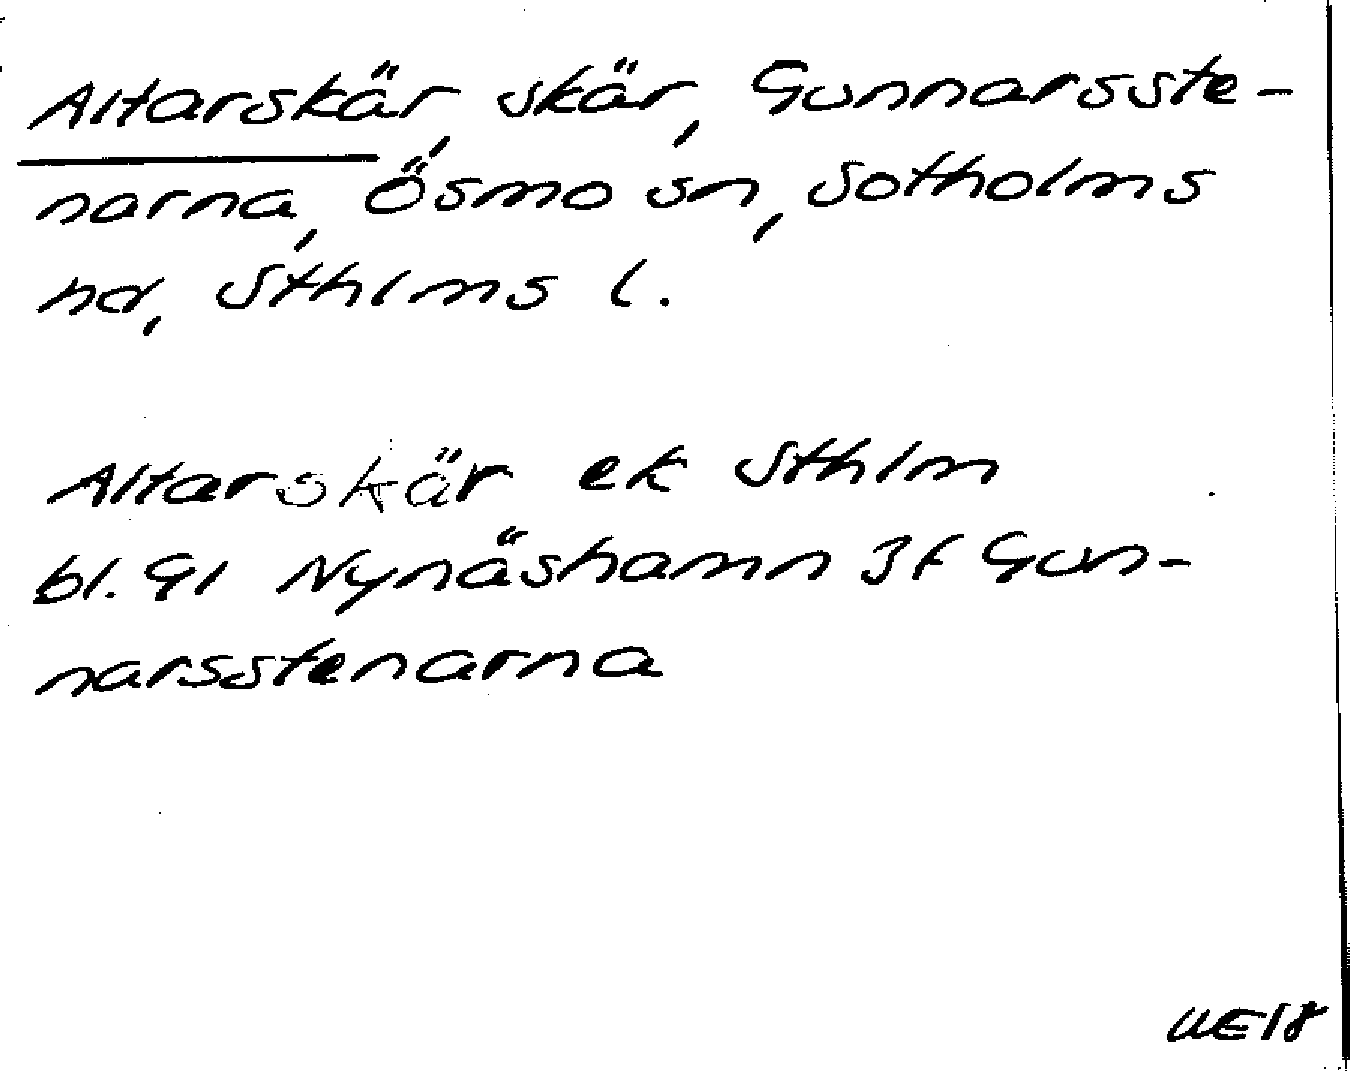 Altarskär, skär, Gunnarsste-
narna, Ösmo sn, Sotholms
hd, Sthlms l.
Altarskär ek Sthlm
bl. 91 Nynäshamn 3f Gun-
narsstenarna